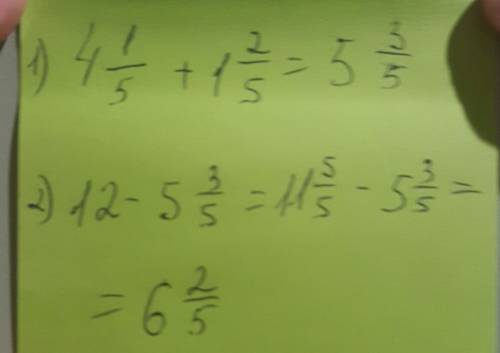 1) 4 1/5 + 1 2/5 = 5 3/5
2) 12 - 5 3/5 = 11 5/5 - 5 3/5 =
= 6 2/5